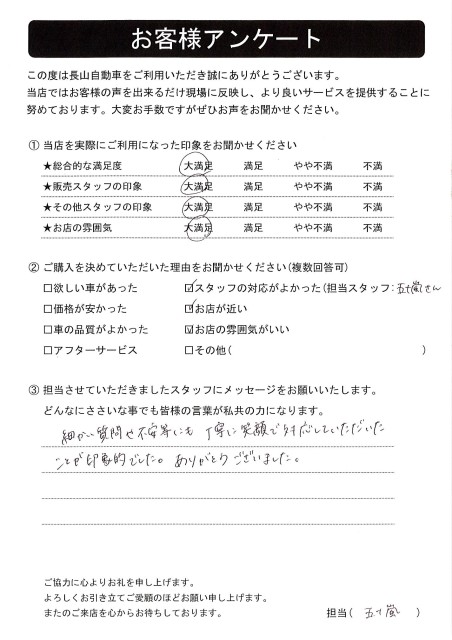 お客様アンケート
この度は長山自動車をご利用いただき誠にありがとうございます。
当店ではお客様の声を出来るだけ現場に反映し、より良いサービスを提供することに
努めております。大変お手数ですがぜひお声をお聞かせください。
① 当店を実際にご利用になった印象をお聞かせください
★総合的な満足度 大満足 満足 やや不満 不満
★販売スタッフの印象 大満足 満足 やや不満 不満
★その他スタッフの印象 大満足 満足 やや不満 不満
★お店の雰囲気 大満足 満足 やや不満 不満
② ご購入を決めていただいた理由をお聞かせください(複数回答可)
□欲しい車があった ☑スタッフの対応がよかった(担当スタッフ:五十嵐さん
□価格が安かった ☑お店が近い
□車の品質がよかった ☑お店の雰囲気がいい
□アフターサービス □その他( )
③ 担当させていただきましたスタッフにメッセージをお願いいたします。
どんなにささいな事でも皆様の言葉が私共の力になります。
細かい質問や不安等にも丁寧に笑顔で対応していただいた
ことが印象的でした。ありがとうございました。
ご協力に心よりお礼を申し上げます。
よろしくお引き立てご愛顧のほどお願い申し上げます。
またのご来店を心からお待ちしております。 担当( 五十嵐 )